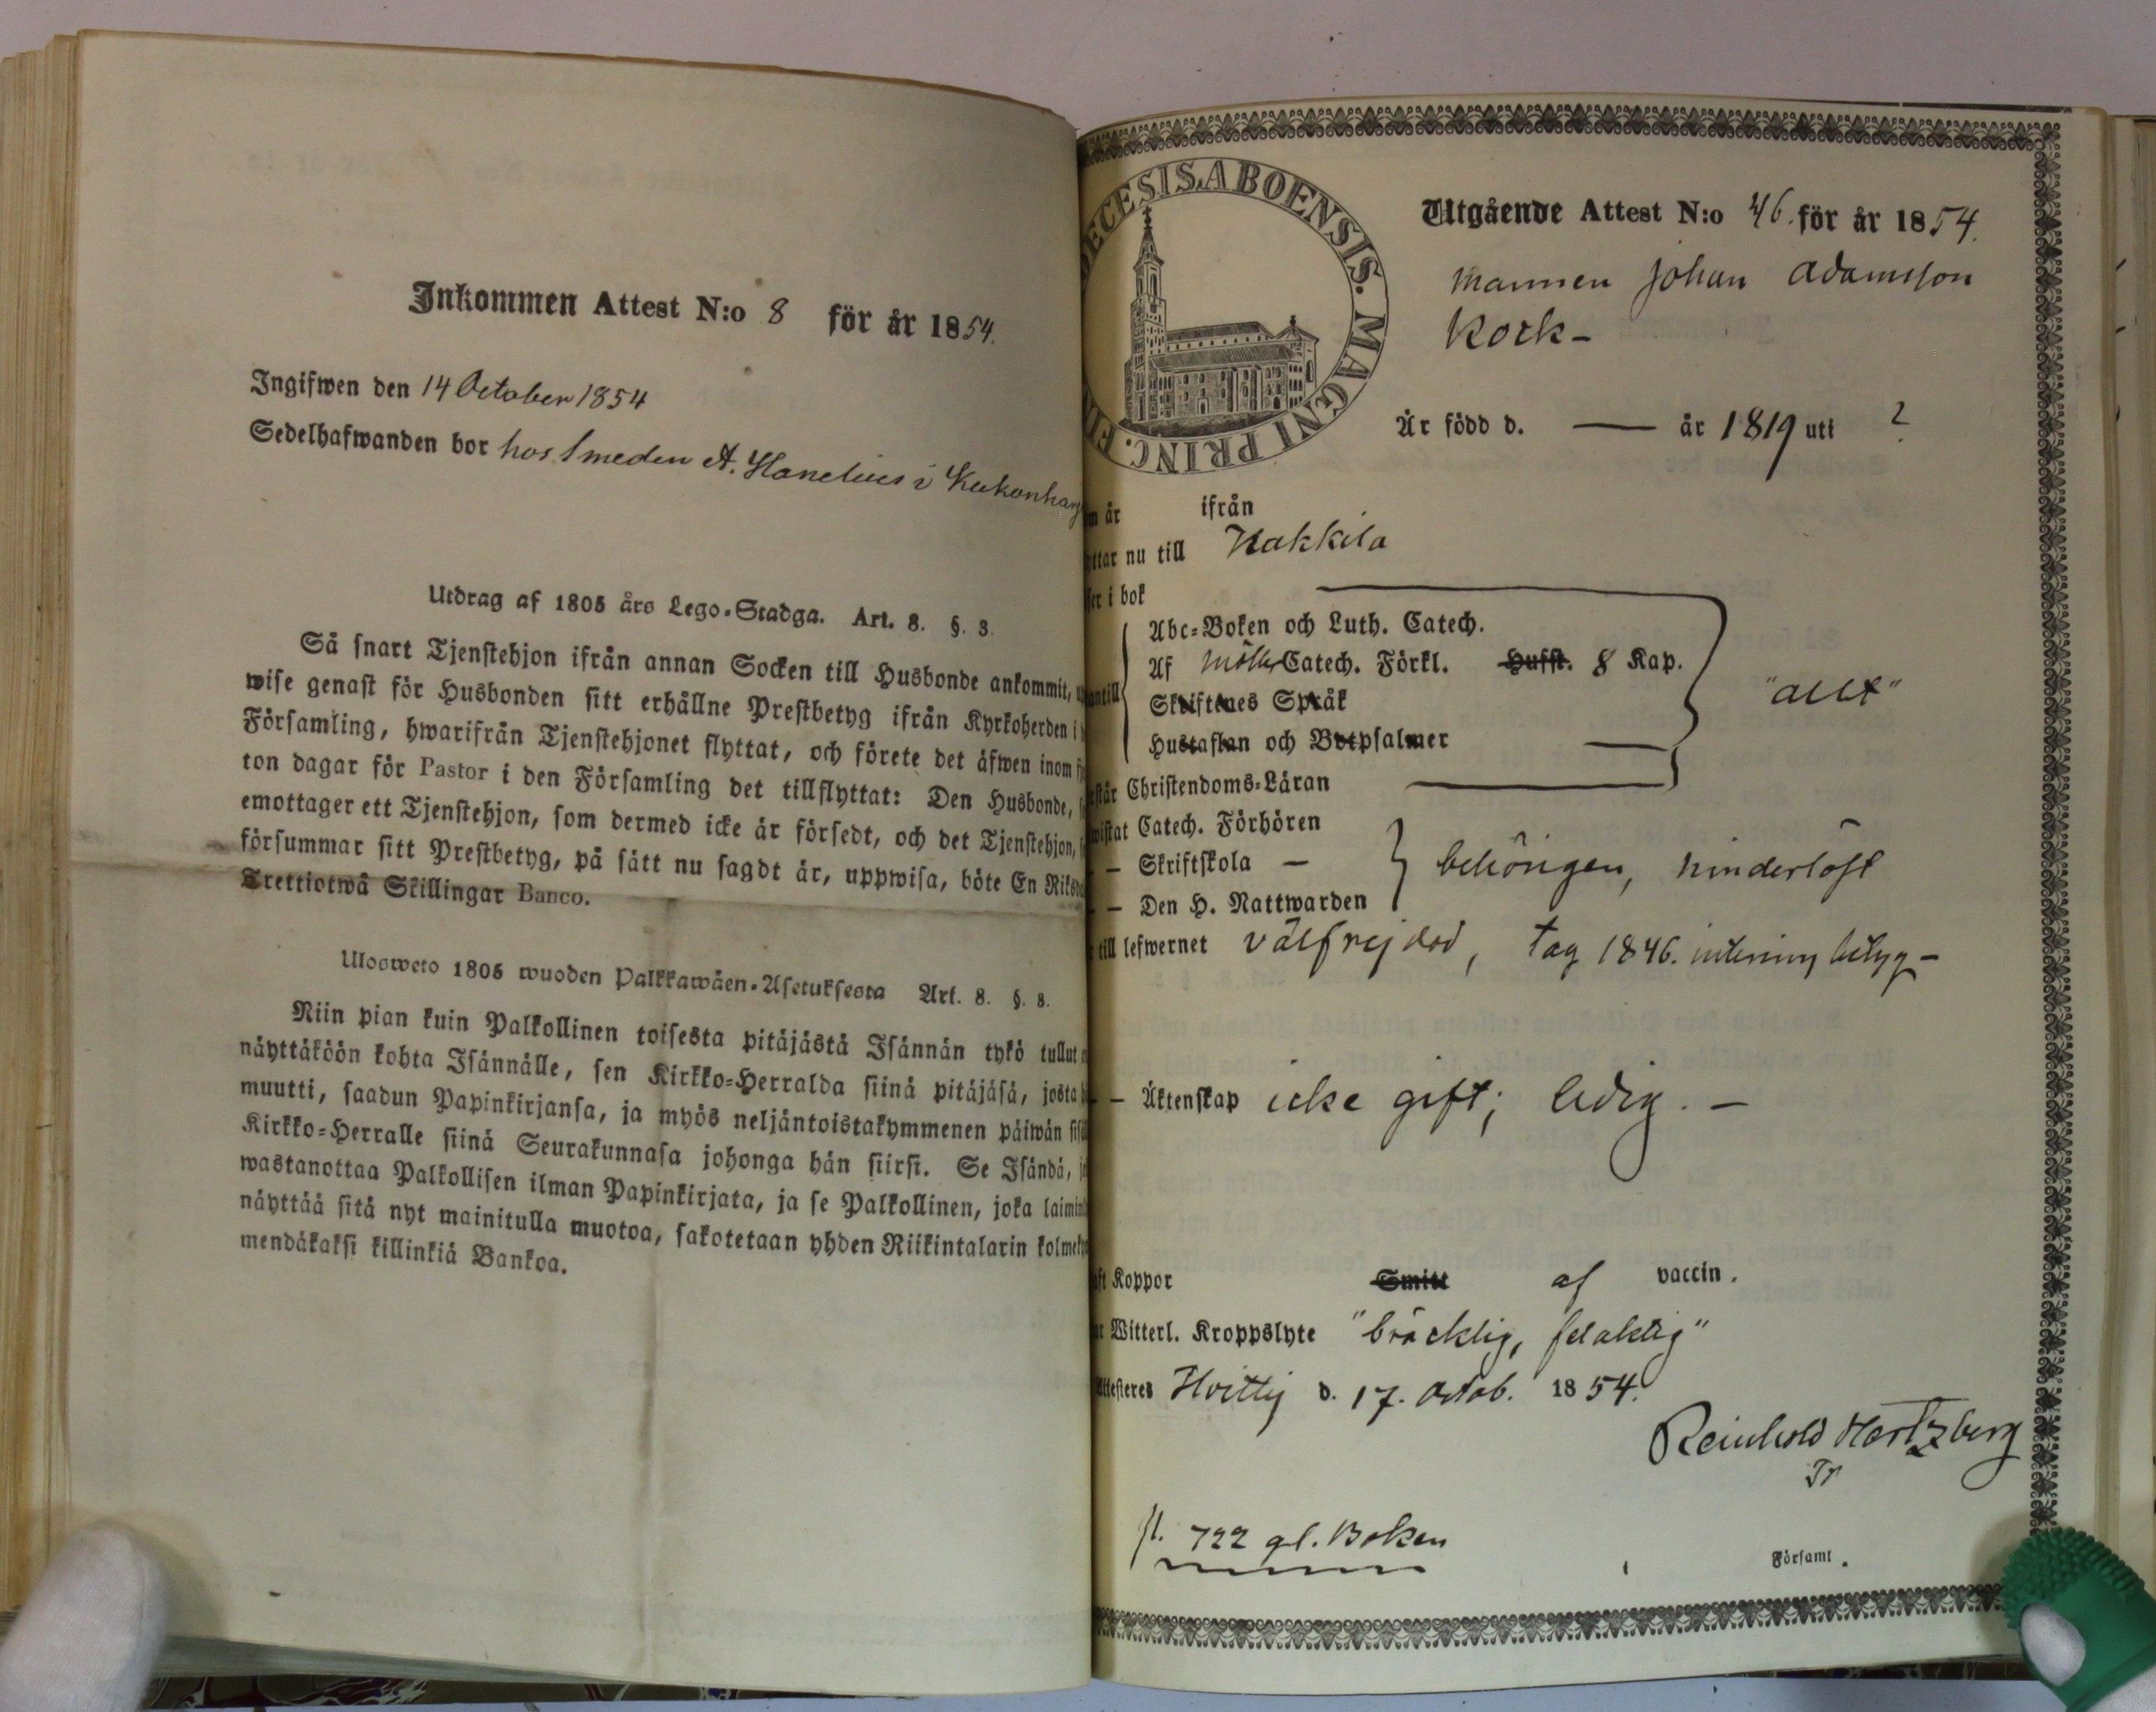 Inkommen Attest N:o 8 för år 1854.
Ingifwen den 14 October 1854
Sedelhafwanden bor hos Smeden A. Hanelius i
Utdrag af 1805 års Lego-Stadga. Art. 8. §. 3.
Så snart Tjenstehjon ifrån annan Socken till Husbonde ankommit,
wise genast för Husbonden sitt erhållne Prestbetyg ifrån Kyrkoherden i
Församling, hwarifrån Tjenstehjonet flyttat, och förete det äfwen inom
ton dagar för Pastor i den Församling det tillflyttat: Den Husbonde,
emottager ett Tjenstehjon, som dermed icke är försedt, och det Tjenstehjon,
försummar sitt Prestbetyg, på sätt nu sagdt är, uppwisa, böte En
Trettiotwå Skillingar Banco.
Ulosweto 1805 wuoden Palkkawäen-Asetuksesta Art. 8. §. 8.
Niin pian kuin Palkollinen toisesta pitäjästä Isännän tykö tullut
näyttäköön kohta Isännälle, sen Kirkko-Herralda siinä pitäjäsä, josta
muutti, saadun Papinkirjansa, ja myös neljäntoistakymmenen päiwän
Kirkko-Herralle siinä Seurakunnasa johonga hän siirsi. Se Isändä,
wastanottaa Palkollisen ilman Papinkirjata, ja se Palkollinen, joka
näyttää sitä nyt mainitulla muotoa, sakotetaan yhden Riikintalarin
mendäkaksi killinkiä Bankoa.
ECESIS. ABOENSIS. MAGNI PRINC.
Utgående Attest N:o 46. för år 1854.
Mannen Johan Adamsson
Kock -
Är född d. — år 1819 uti ?
är ifrån
nu till Kakkila
i bok
Abc-Boken och Luth. Catech.
Af Catech. Förkl. Hufst. 8 Kap.
Skriftenes Språk
"allt"
Hustaflan och Botpsalmer
Christendoms-Läran
Catech. Förhören
— Skriftskola —
behörigen, hinderlöst
— Den H. Nattwarden
till lefwernet välfrejdad, tag 1846. betyg -
— Äktenskap icke gift; ledig. -
Koppor Smitt af vaccin.
Witterl. Kroppslyte "bräcklig, felaktig"
Attesteres Hvittis d. 17. Octob. 1854.
Reinhold Hertzberg
722 gl. Boken
Församl.